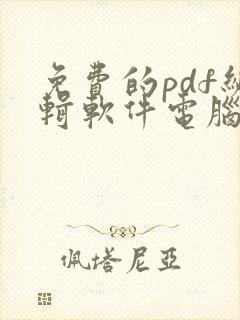 免費的pdf編
輯軟件電腦
佩塔尼亞